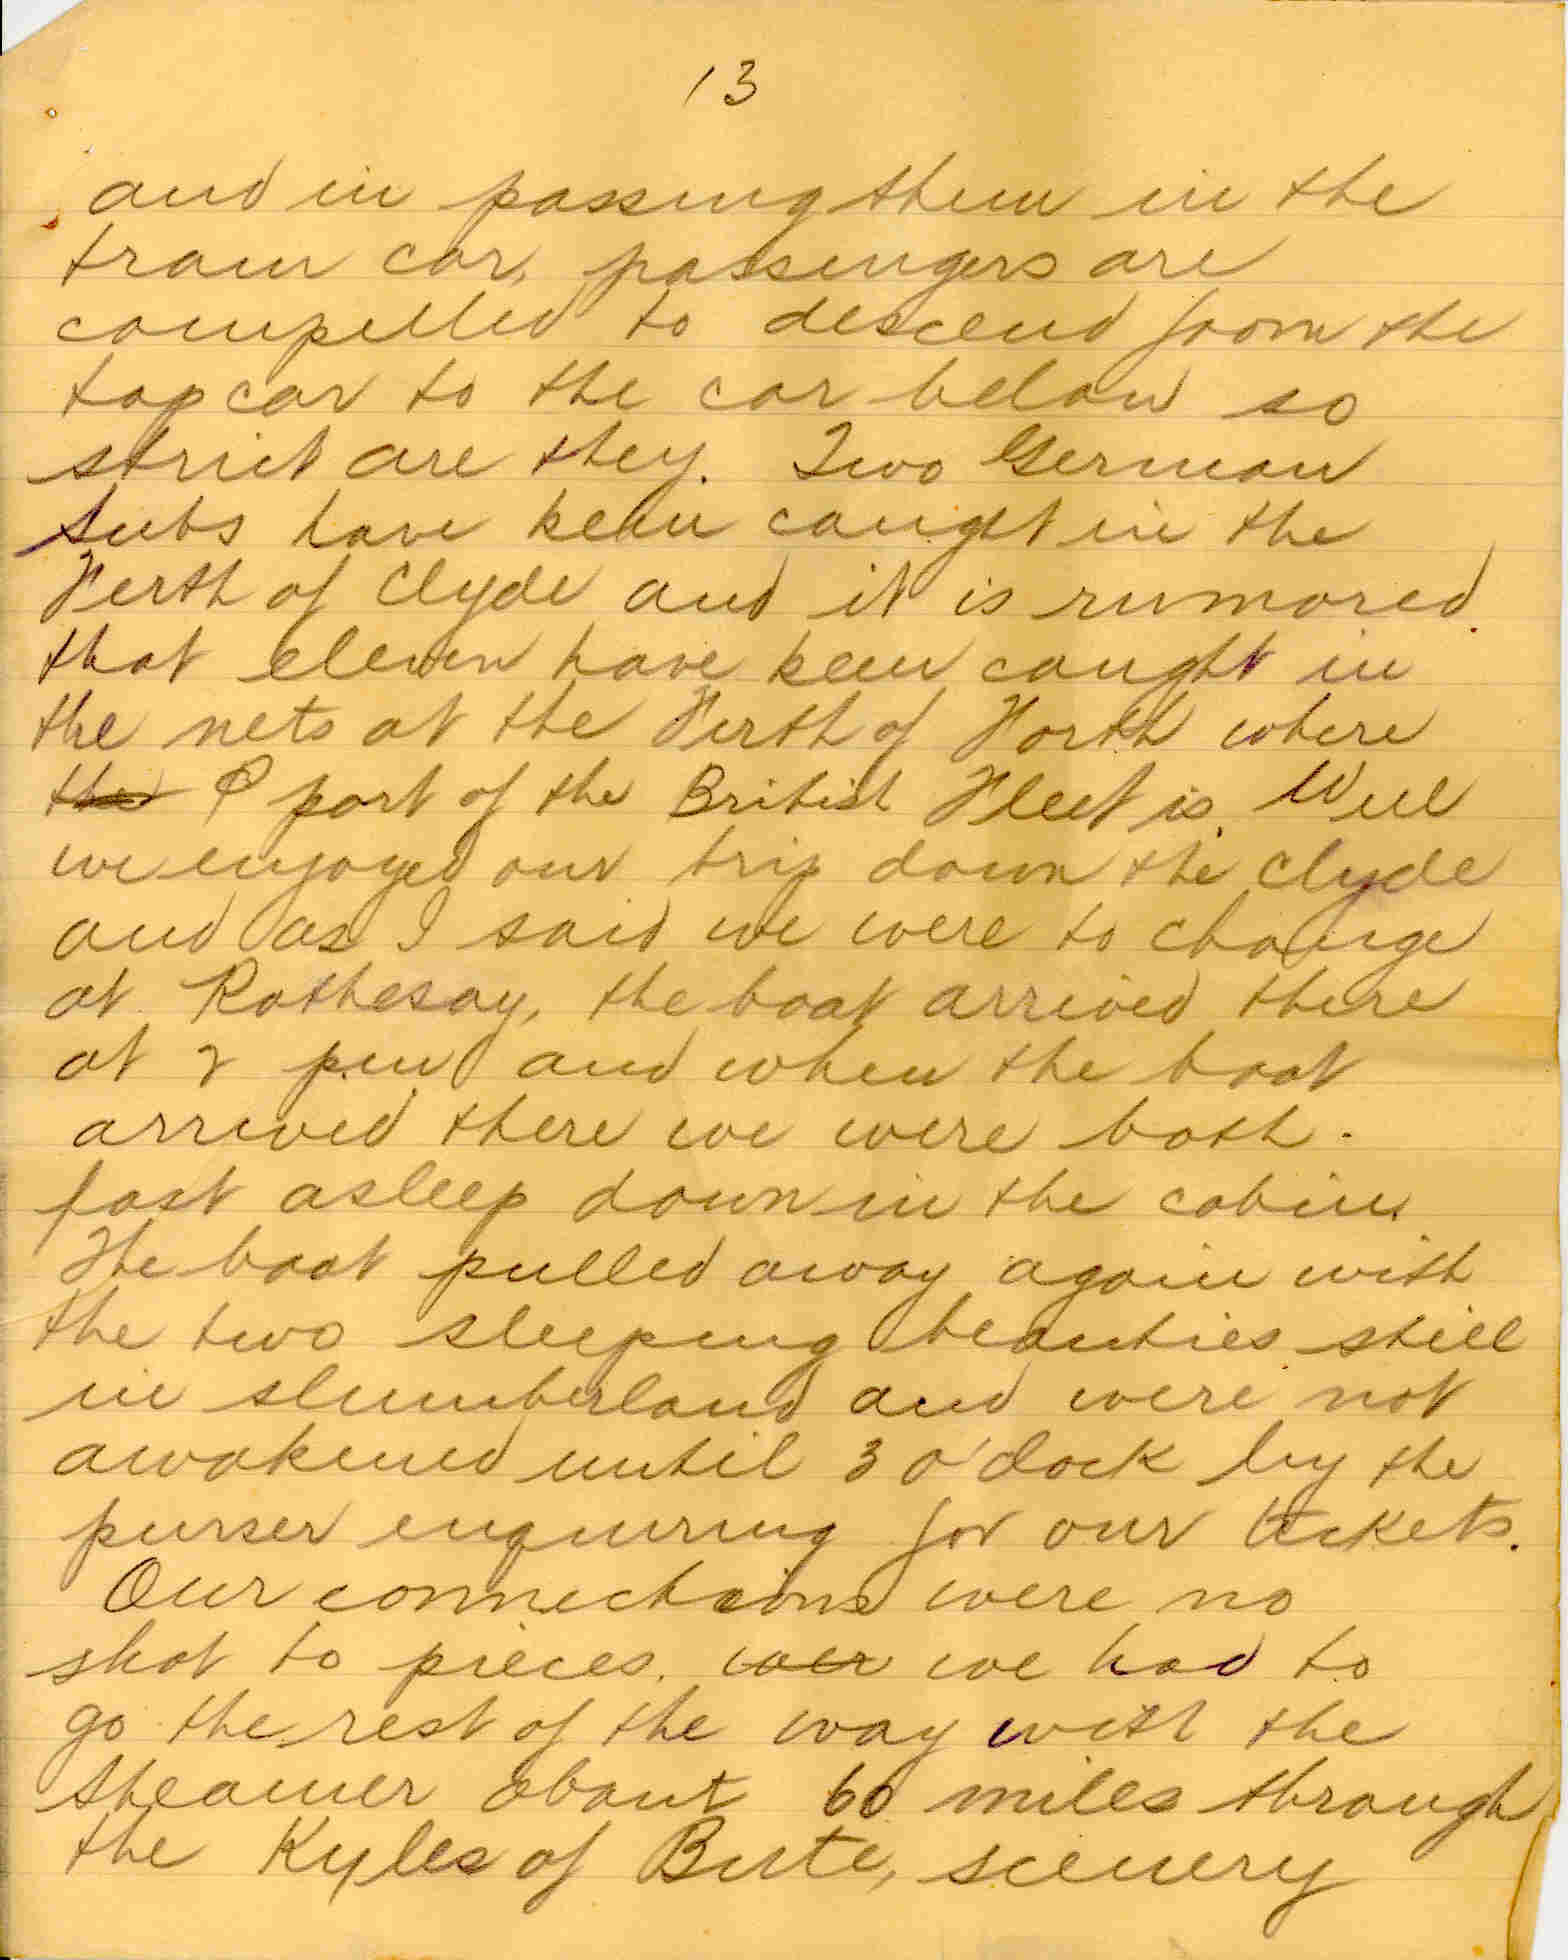 13
and in passing them in the
tram car, passengers are
compelled to descend from the
top car to the car below so
strict are they. Two German
Subs have been caught in the
Firth of Clyde and it is rumored
that eleven have been caught in
the nets at the Firth of Forth where
the P port of the British Fleet is. Well
we enjoyed our trip down the Clyde
and as I said we were to change
at Rothesay, the boat arrived there
at 2 p.m and when the boat
arrived there we were both.
fast asleep down in the cabin.
The boat pulled away again with
the two sleeping beauties still
in slumberland and were not
awakened until 3 o'clock by the
purser enquiring for our tickets.
Our connections were no
shot to pieces. wer we had to
go the rest of the way with the
steamer about 60 miles through
the Kyles of Bute, scenery